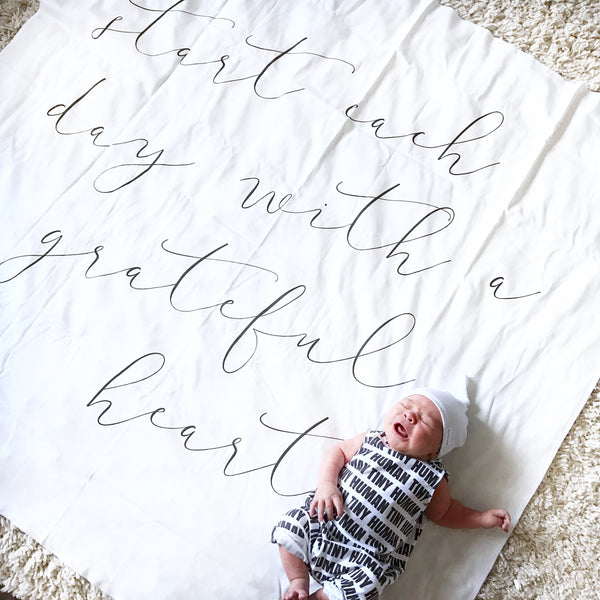 start each
day with a
grateful
heart
TINY HUMAN TINY
HUMAN TINY HUMAN
TINY HUMAN